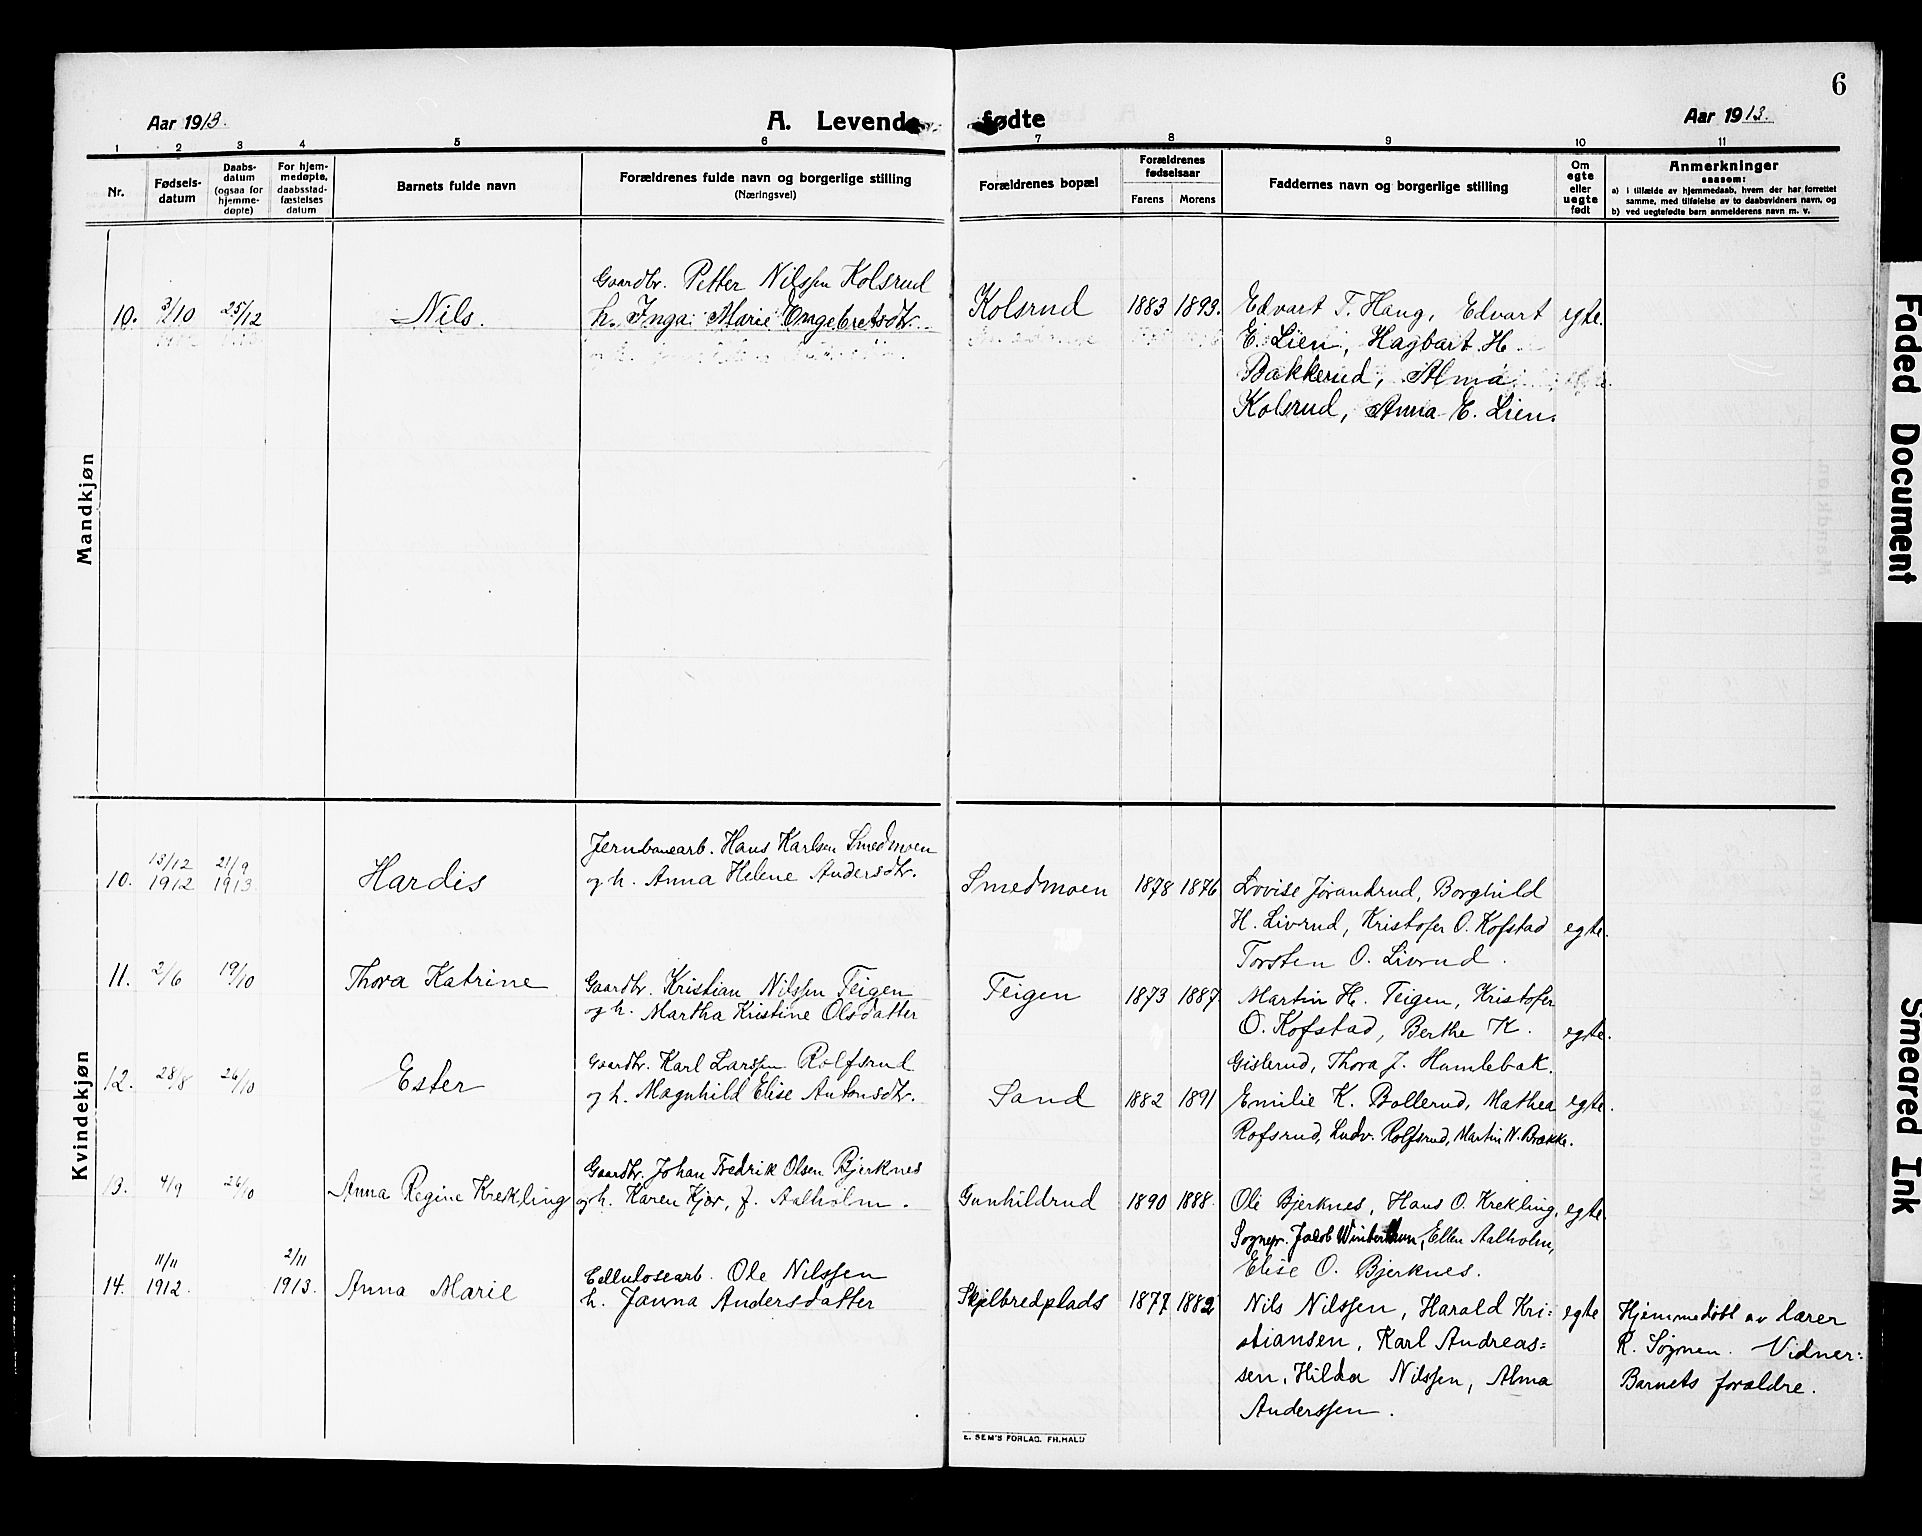 6
Aar 1913.
A. Levende
fødte
Aar 1913.
1 2 3 4 5 6 7 8 9 10 11
Nr.
Fødsels-
datum
Daabs-
datum
(ogsaa for
hjemme-
døpte)
For hjem-
medøpte,
daabsstad-
fæstelses
datum
Barnets fulde navn
Forældrenes fulde navn og borgerlige stilling
(Næringsvei)
Forældrenes bopæl
Forældrenes
fødselsaar
Farens Morens
Faddernes navn og borgerlige stilling
Om
egte
eller
uegte
født
Anmerkninger
saasom:
a) i tilfælde av hjemmedaab, hvem der har forrettet
samme, med tilføielse av to daabsvidners navn, og
b) ved uegtefødte barn anmelderens navn m. v.
Mandkjøn
10. 3/10 25/12 Nils.
Gaardbr. Petter Nilssen Kolsrud
h. Inga Marie Engebretsdtr.
Kolsrud 1883 1893.
Edvart T. Haug, Edvart
E. Lien, Hagbart H.
Bakkerud, Alma
Kolsrud, Anna E. Lien.
egte.
Kvindekjøn
10. 13/12 1912 21/9 1913 Hardis
Jernbanearb. Hans Karlsen Smedmoen
og h. Anna Helene Andersdtr.
Smedmoen 1878 1876
Lovise Jørandrud, Borghild
H. Livrud, Kristofer O. Kofstad
Torsten O. Livrud.
egte.
11. 2/6 19/10 Thora Katrine
Gaardbr. Kristian Nilssen Teigen
og h. Martha Kristine Olsdatter
Teigen 1873 1887.
Martin H. Teigen, Kristofer
O. Kofstad, Berthe K.
Gislerud, Thora J. Humlebak.
egte.
12. 28/8 26/10 Ester
Gaardbr. Karl Larssen Rolfsrud
og h. Magnhild Elise Antonsdtr.
Sand 1882 1891
Emilie K. Bollerud, Mathea
Rofsrud, Ludv. Rolfsrud, Martin N. Brække.
egte.
13. 4/9 26/10 Anna Regine Krekling
Gaardbr. Johan Fredrik Olsen Bjerknes
og h. Karen Kjær, f. Aalholm.
Gunhildrud 1890 1888.
Ole Bjerknes, Hans O. Krekling,
Sognepr. Jacob Winterthun, Ellen Aalholm,
Elise O. Bjerknes.
egte.
14. 11/11 1912. 2/11 1913. Anna Marie
Cellulosearb. Ole Nilssen
h. Janna Andersdatter
Skjelbredplads 1877 1882
Nils Nilssen, Harald Kri-
stiansen, Karl Andreas-
sen, Hilda Nilssen, Alma
Anderssen.
egte
Hjemmedøbt av lærer
R. Sognen. Vidner:
Barnets forældre.
E. SEM'S FORLAG. FR.HALD
Faded Document
Smeared Ink